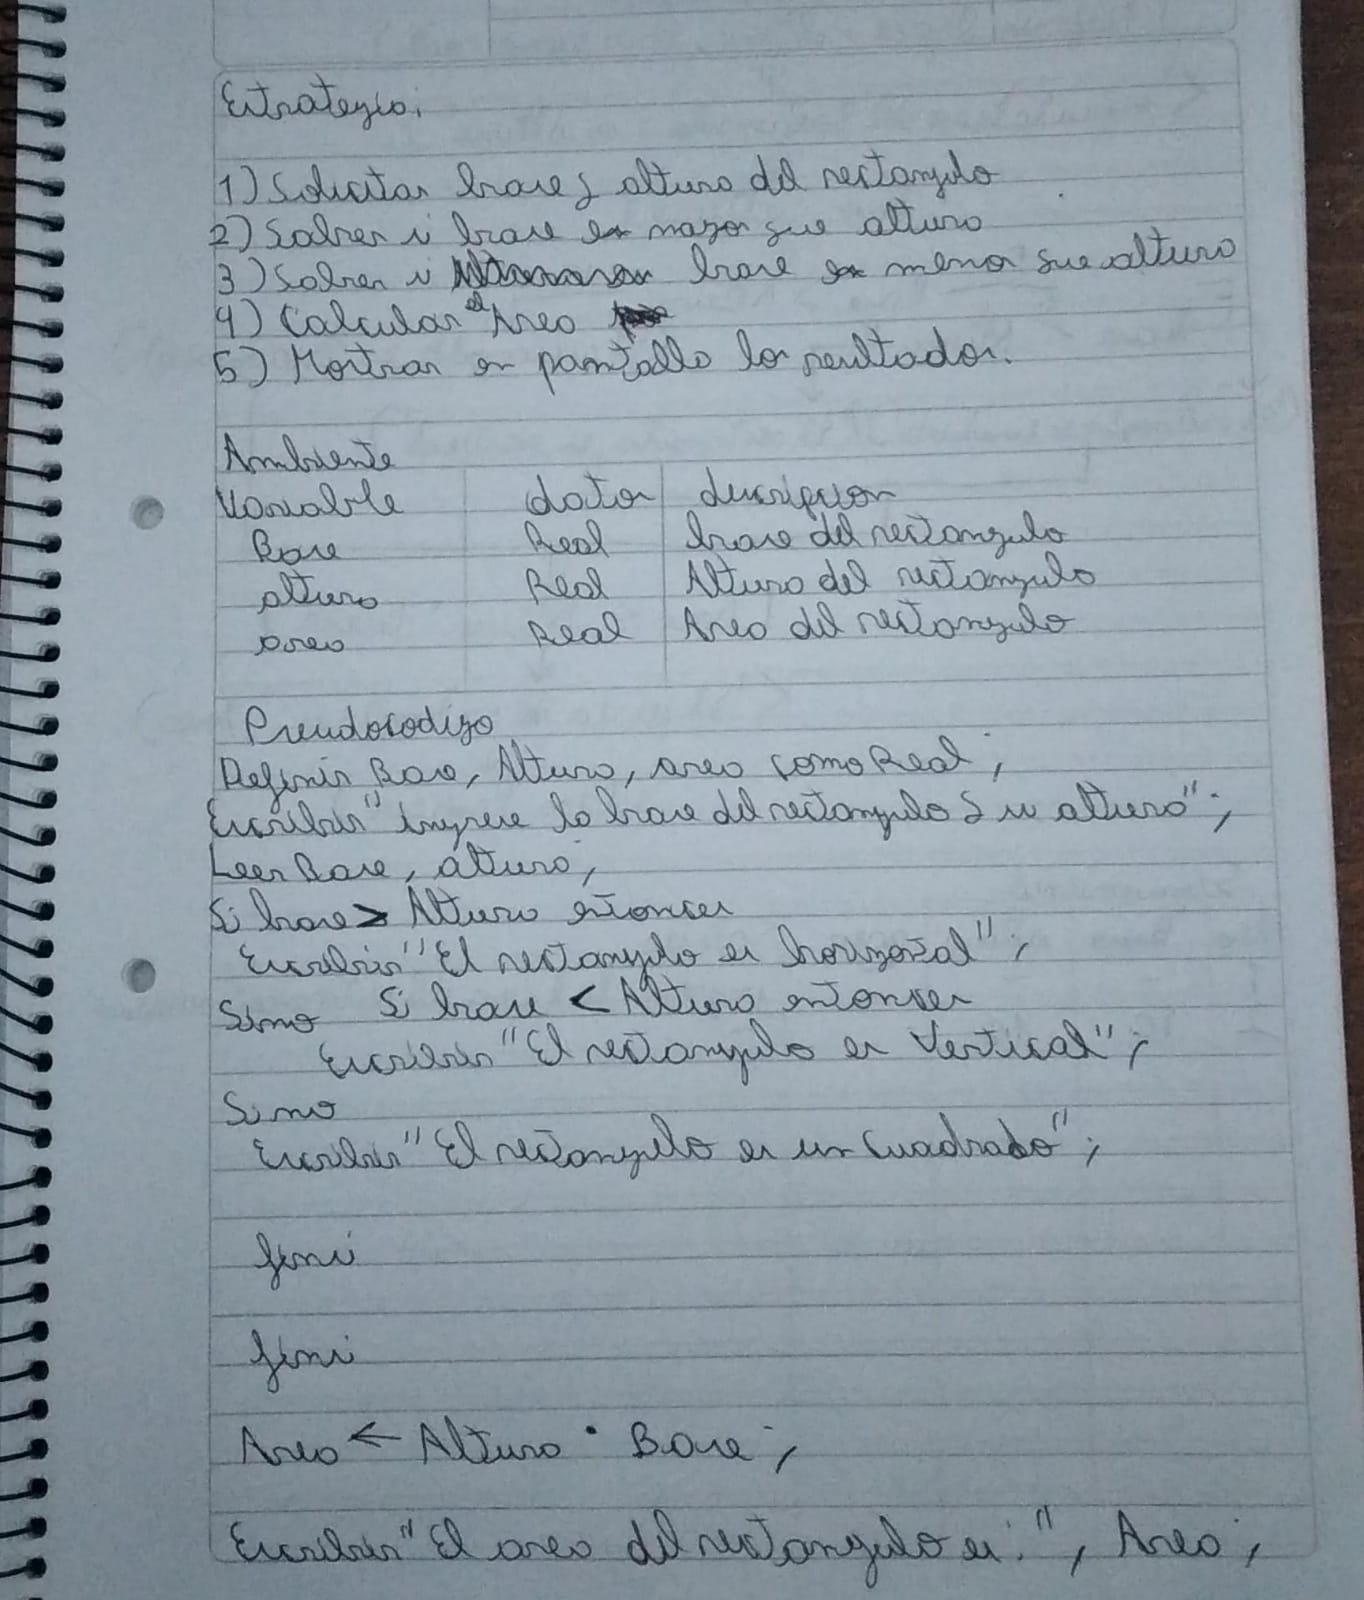 Estrategia:
1) Solicitar base y altura del rectangulo
2) Saber si base es mayor que altura
3) Saber si base es menor que altura
4) Calcular el Area
5) Mostrar en pantalla los resultados.
Ambiente
Variable datos descripcion
Base Real base del rectangulo
altura Real Altura del rectangulo
area Real Area del rectangulo
Pseudocodigo
Definir Base, Altura, area como Real;
Escribir "ingrese la base del rectangulo y su altura";
Leer Base, altura;
Si base > Altura entonces
Escribir "El rectangulo es horizontal";
Sino Si base < Altura entonces
Escribir "El rectangulo es Vertical";
Sino
Escribir "El rectangulo es un Cuadrado";
finsi
finsi
Area ← Altura * Base;
Escribir "El area del rectangulo es:", Area;